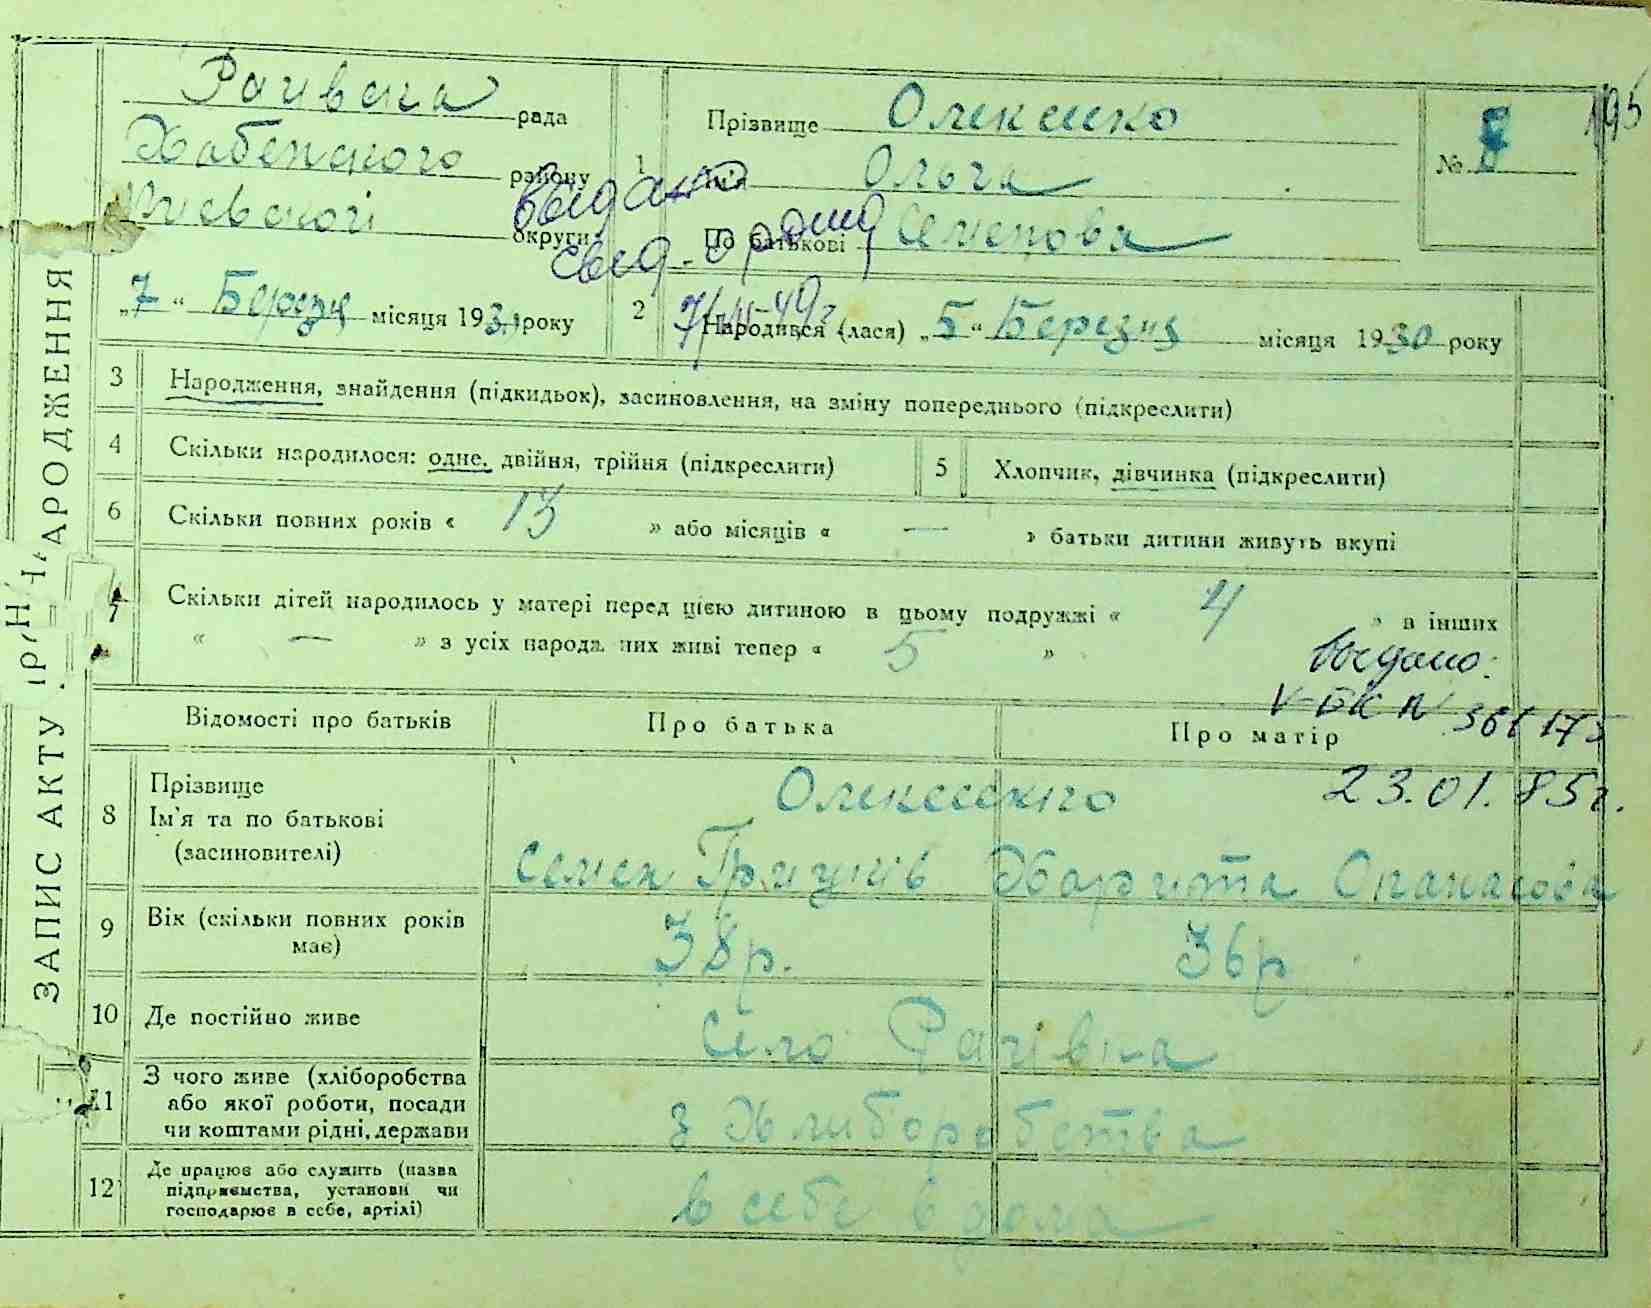 195
Рагивска рада
Хабенского району
Киевскоі округи
1
Прізвище Олексенко
Ім'я Ольга
По батькові Семенова
№
выдано
свид. о рожд
7/III-49г
„7“ Березня місяця 193 року
2
Народився (лася) „5“ Березня місяця 1930 року
ЗАПИС АКТУ ПРО НАРОДЖЕННЯ
3 Народження, знайдення (підкидьок), засиновлення, на зміну попереднього (підкреслити)
4 Скільки народилося: одне, двійня, трійня (підкреслити)
5 Хлопчик, дівчинка (підкреслити)
6 Скільки повних років « 13 » або місяців « — » батьки дитини живуть вкупі
7 Скільки дітей народилось у матері перед цією дитиною в цьому подружжі « 4 » в інших
« — » з усіх народж них живі тепер « 5 »
выдано:
V-БК N 361175
23.01.85г.
Відомості про батьків Про батька Про матір
8 Прізвище
Ім'я та по батькові
(засиновителі)
Олексеенко
Семен Грицків Харитта Опанасова
9 Вік (скільки повних років
має)
38р. 36р
10 Де постійно живе Село Рагівка
11 З чого живе (хліборобства
або якої роботи, посади
чи коштами рідні, держави
з Хлиборобства
12 Де працює або служить (назва
підприємства, установи чи
господарює в себе, артілі)
в себе вдома